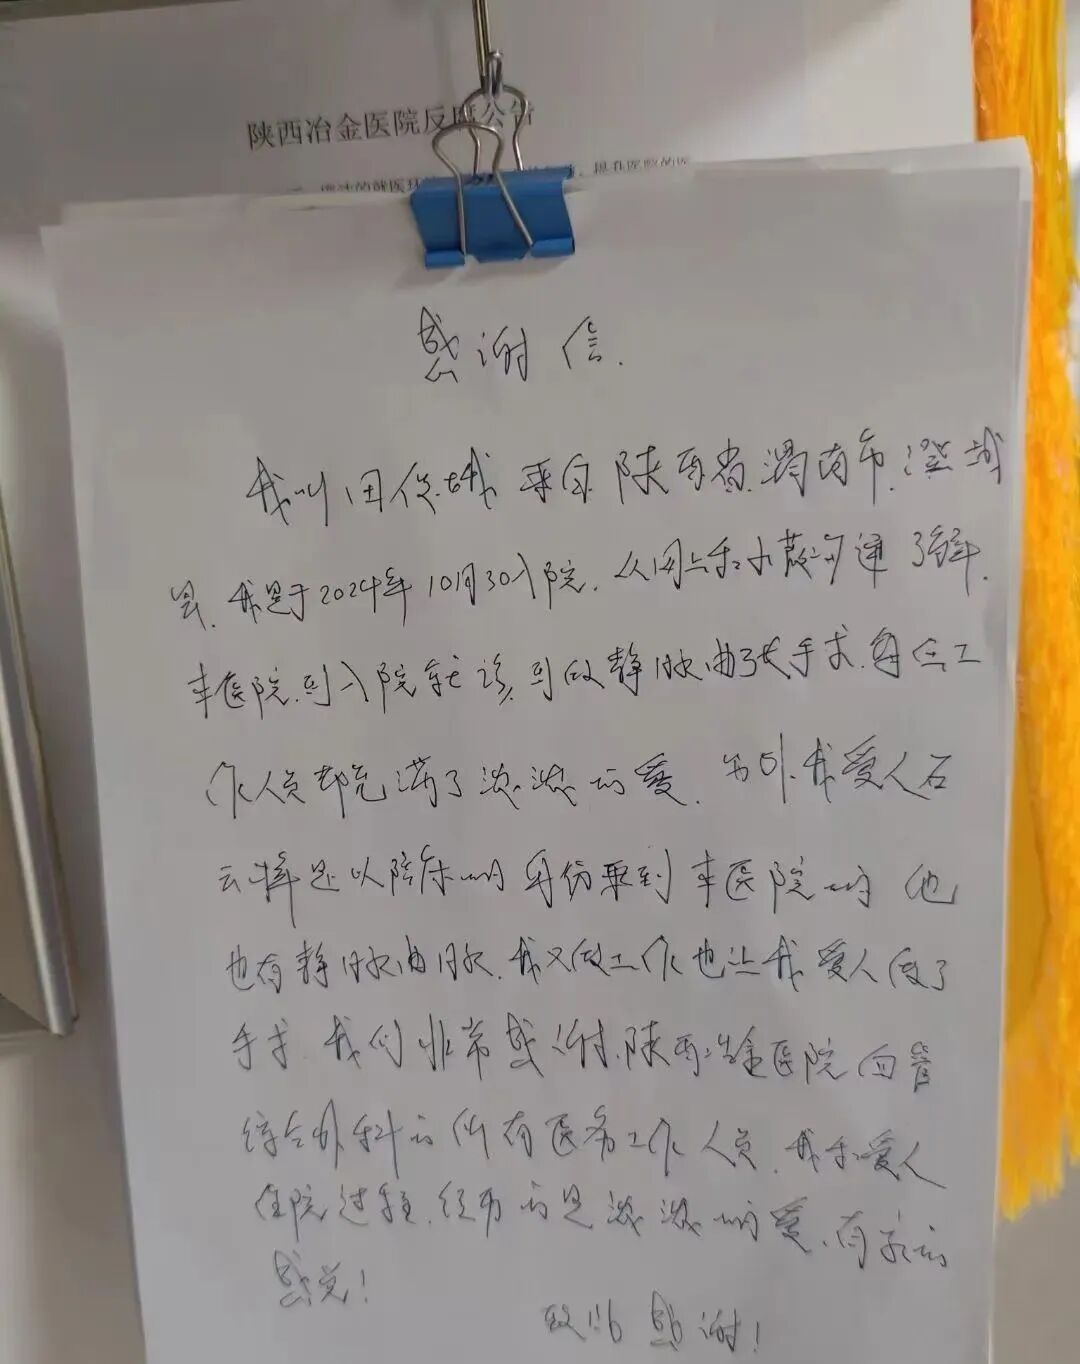 陕西冶金医院反
公告
感谢信.
我叫田 来自陕西省渭南市澄城
县.我是于2024年10月30入院.从网上和 沟通了解.
本医院.到入院就 到做静脉曲张手术.每位工
作人员都充满了浓浓的爱.另外.我爱人石
云 是以陪床的身份来到本医院的 他
也有静脉曲脉.我又做工作也让我爱人做了
手术.我们非常感谢.陕西冶金医院血管
综合外科的所有医务工作人员.我和爱人
住院过程.经历的是浓浓的爱.有家的
感觉!
致以感谢!